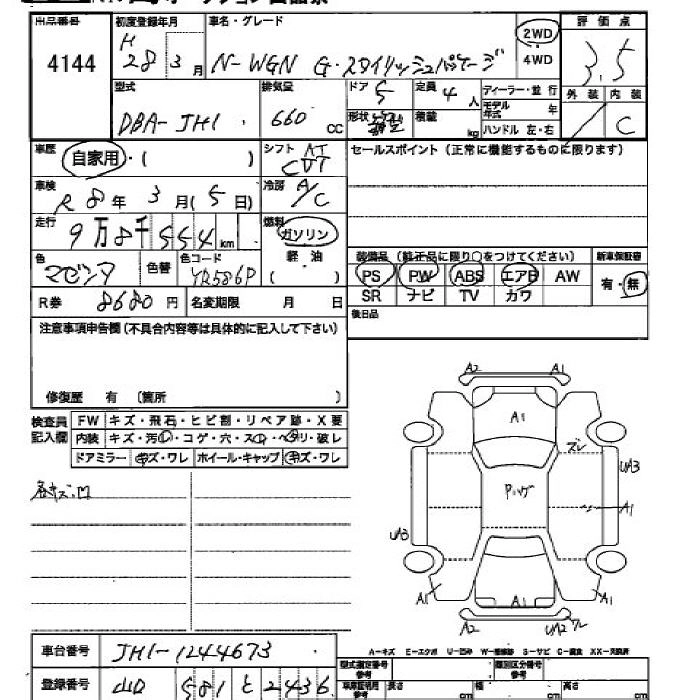 出品番号 初度登録年月 車名・グレード 評価点
4144 H 28年 3月 N-WGN G・スタイリッシュパッケージ 2WD 4WD 3.5
型式 排気量 ドア 5 定員 4人 ディーラー・並行 外装 内装
DBA-JH1 660cc 形状 積載 kg モデル年式 年 ハンドル 左・右 C
車歴 自家用・( ) シフト AT CVT セールスポイント (正常に機能するものに限ります)
車検 R8年 3月(5日) 冷房 A/C
走行 9万8千554km 燃料 ガソリン 軽油 ( )
色 マゼンタ 色替 色コード YR586P
装備品 (純正品に限り○をつけてください) 新車保証書
PS PW ABS エアB AW 有・無
SR ナビ TV カワ
R券 8680円 名変期限 月 日 後日品
注意事項申告欄(不具合内容等は具体的に記入して下さい)
修復歴 有 (箇所 )
検査員記入欄 FW キズ・飛石・ヒビ割・リペア跡・X要
内装 キズ・汚・コゲ・穴・スレ・ヘタリ・破レ
ドアミラー キズ・ワレ ホイール・キャップ キズ・ワレ
各キズ凹
A2 A1
A1
ズレ
UA3
A1
UA3
A1 A1 A1
A2 UA2
A-キズ E-エクボ U-凹み
車台番号 JH1-1244673
型式指定番号 参考 類別区分番号 参考
登録番号 山口 581 と 2436
長さ cm 幅 cm 高さ cm